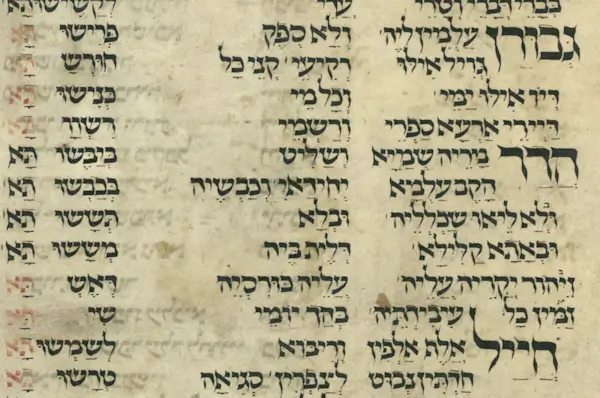 בברי דברי וטרי עדי לקשישו תא
גבורן עלמין ליה ולא ספק פרישו תא
גויל אילו רקיעי קני כל חורש תא
דיו אילו ימי וכל מי כנישו תא
דיירי ארעא ספרי ורשמי רשוו תא
הדר מריה שמיא ושליט ביבשו תא
הקם עלמיא יחידאי וכבשיה בכבשו תא
ולא ליאו שכלליה ובלא תששו תא
ובאתא קלילא דלית ביה מששו תא
זיהור יקריה עליה עליה כורסיה דאש תא
זמין כל עיבידתיה בהך יומי שי תא
חייל אלף אלפין וריבוא לשמשו תא
חדתין נבוט לצפרין סגיאה טרשו תא